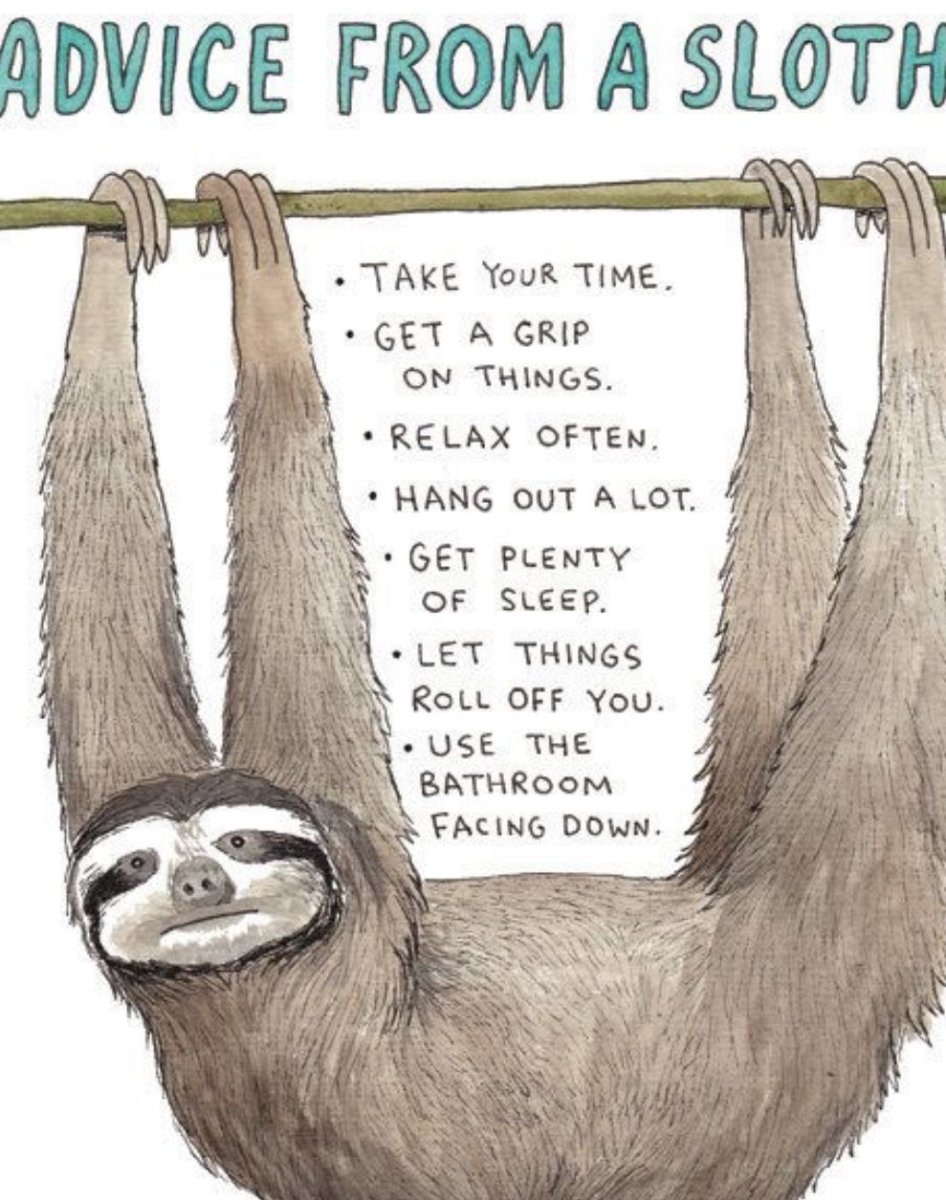 ADVICE FROM A SLOTH
• TAKE YOUR TIME.
• GET A GRIP
ON THINGS.
• RELAX OFTEN.
• HANG OUT A LOT.
• GET PLENTY
OF SLEEP.
• LET THINGS
ROLL OFF YOU.
• USE THE
BATHROOM
FACING DOWN.